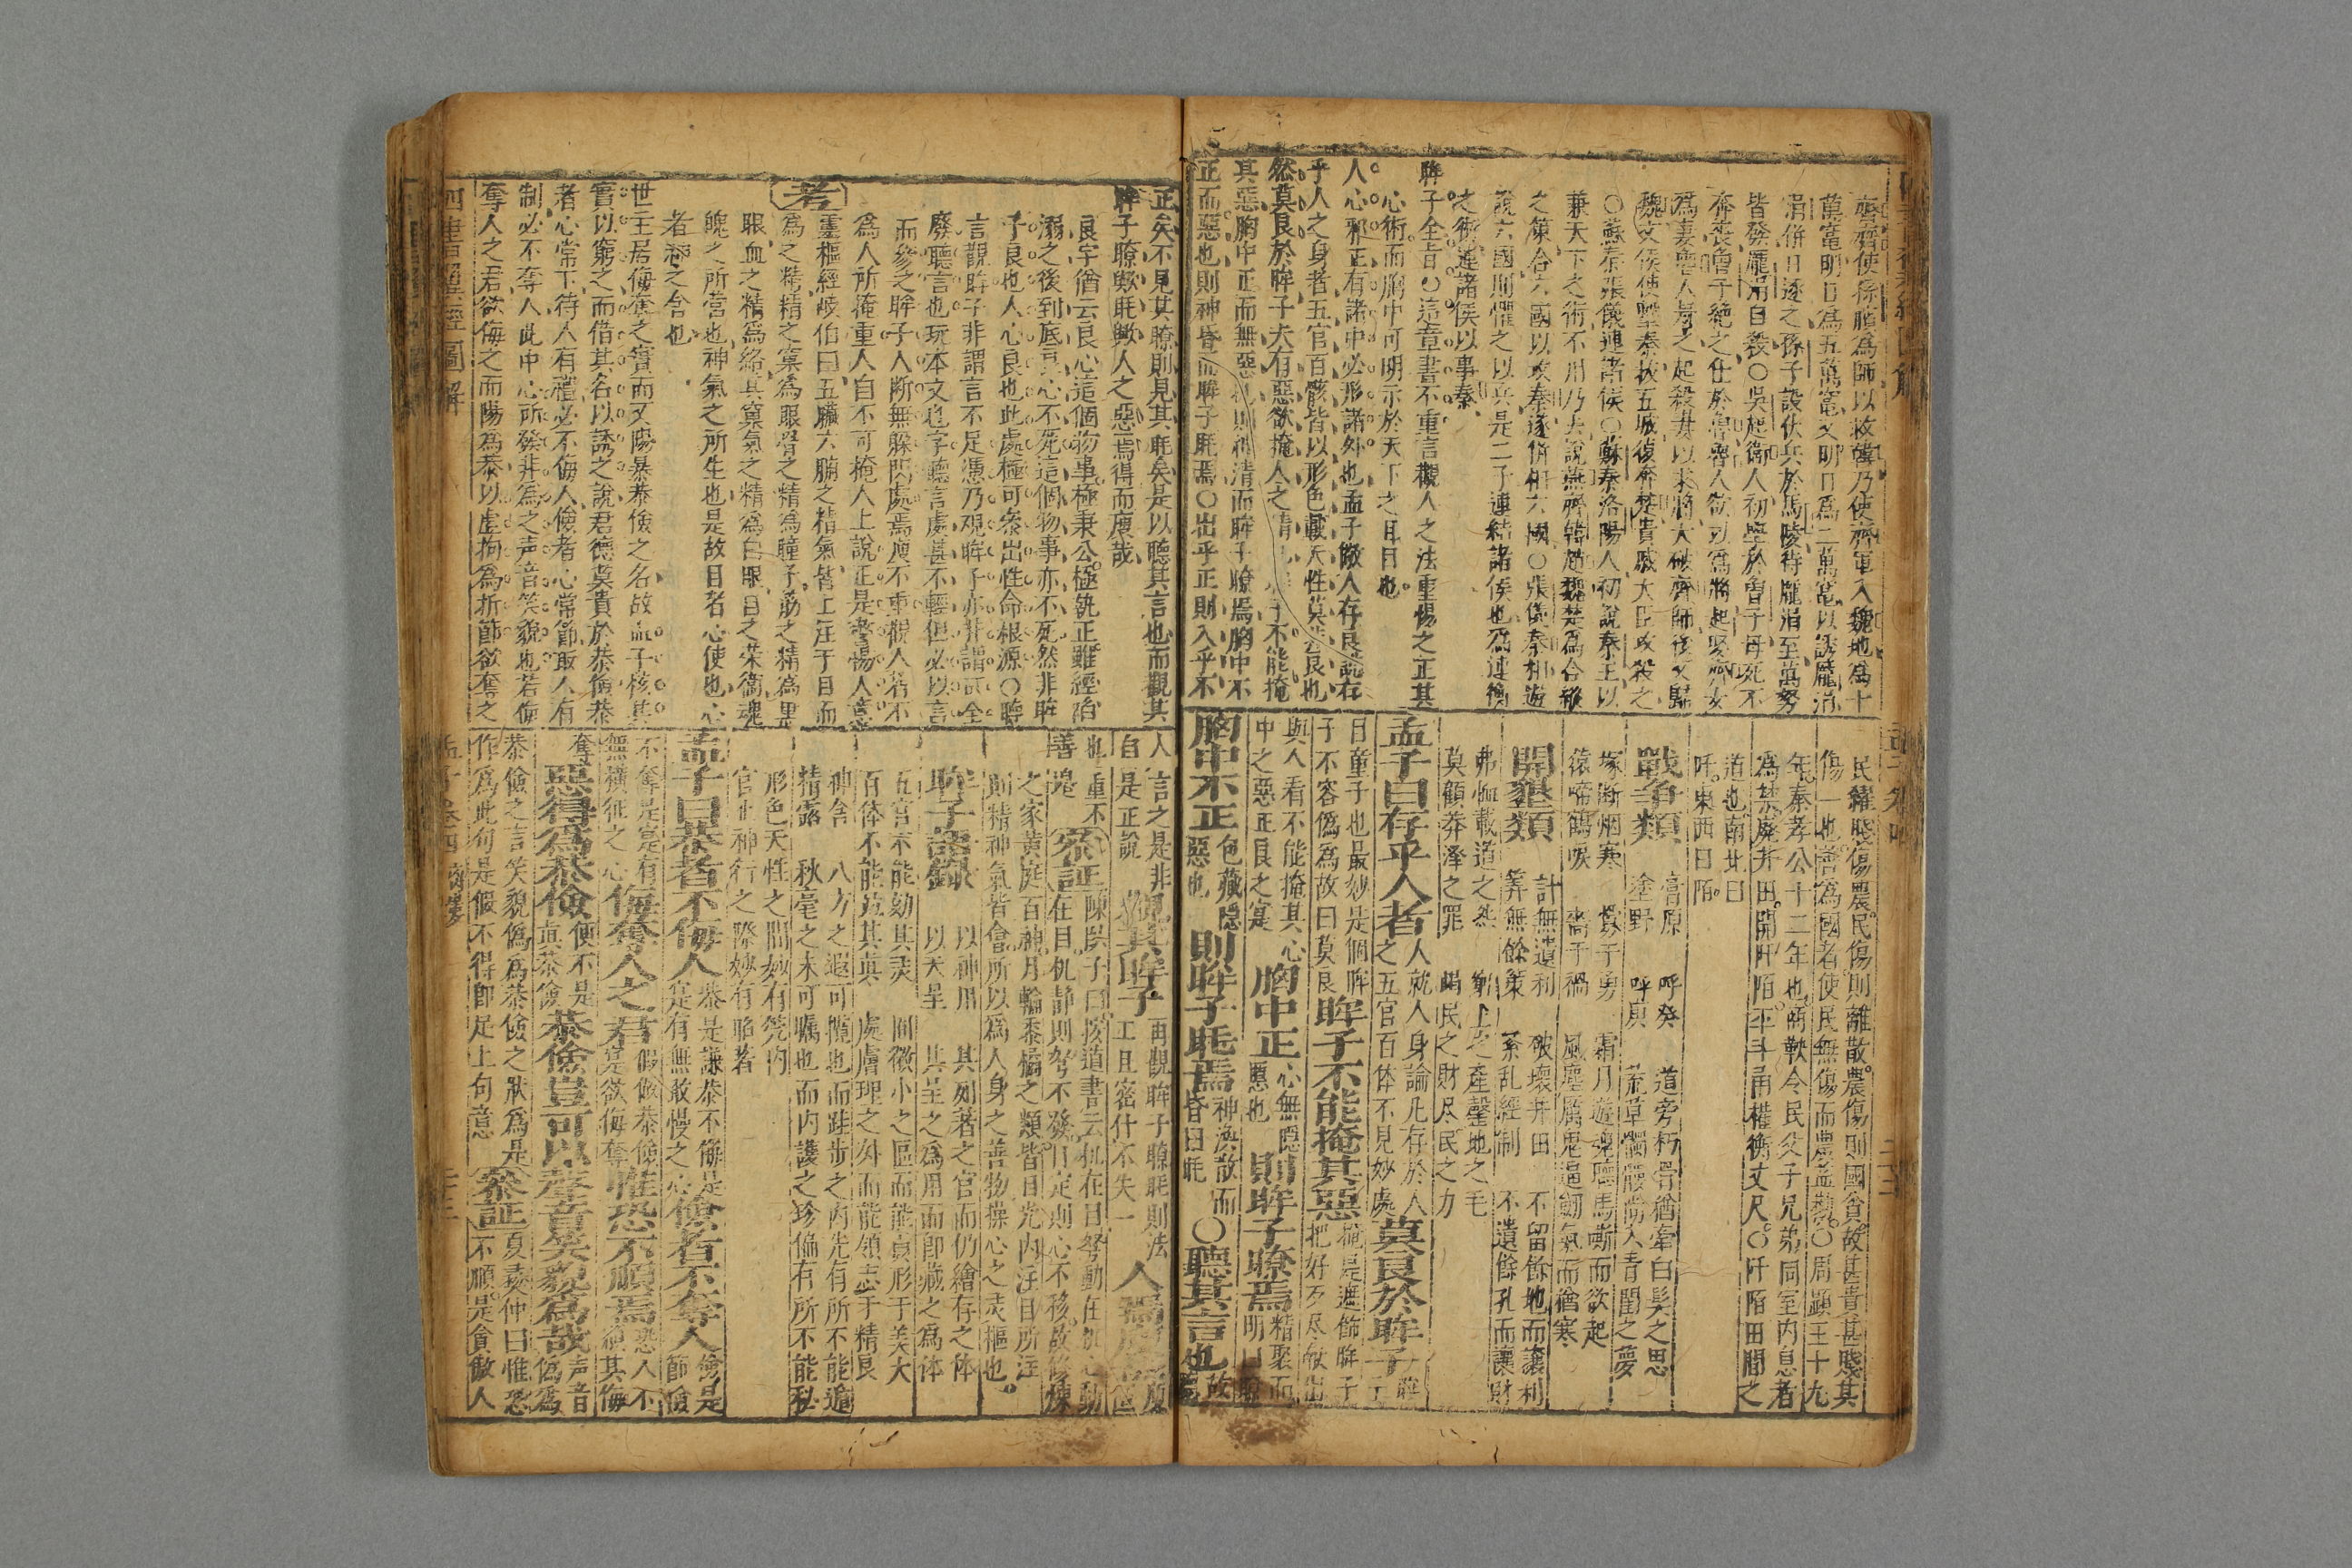 齊齊使孫臏為師以救韓乃使齊軍入魏地為十
萬竈明日為五萬竈又明日為二萬竈以誘龐涓
涓併日逐之孫子設伏兵於馬陵待龐涓至萬弩
皆發龐涓自殺○吳起衛人初學於曾子母死不
奔喪曾子絕之仕於魯魯人欲以為將起娶齊女
為妻魯人疑之起殺妻以求將大破齊師後又歸
魏文侯使擊秦拔五城後奔楚貴戚大臣攻殺之
○蘇秦張儀連諸侯○蘇秦洛陽人初說秦王以
兼天下之術不用乃去說燕齊韓趙魏楚為合縱
之策合六國以攻秦遂併相六國○張儀秦相遊
說六國則懼之以兵是二子連結諸侯也為連衡
之術連諸侯以事秦
眸子全旨○這章書不重言觀人之法重惕之正其
心術而胸中可明示於天下之耳目也
人心邪正有諸中必形諸外也孟子儆人存良說存
乎人之身者五官百骸皆以形色載天性莫善良也
然莫良於眸子夫有惡欲掩人之情
子不能掩
其惡胸中正而無惡也則神清而眸子瞭焉胸中不
正而惡也則神昏而眸子眊焉○出乎正則入乎不
民糴賤傷農民傷則離散農傷則國貧故甚貴甚賤其
傷一也善為國者使民無傷而農益勸○周顯王十九
年秦孝公十二年也商鞅令民父子兄弟同室內息者
為禁廢井田開阡陌平斗甬權衡丈尺○阡陌田間之
道也南北曰
阡東西曰陌
戰爭類
膏原
塗野
呼癸
呼庚
道旁朽骨猶牽白髮之思
荒草髑髏尚入青閨之夢
塚斷烟寒
猿啼鶴唳
賈于勇
嗇于禍
霜月遊魂聽馬嘶而欲起
風塵厲鬼逼劍氣而猶寒
開墾類
計無遺利
筭無餘策
破壞井田
紊乱經制
不留餘地而讓利
不遺餘孔而讓財
弗恤載道之怨
莫顧莽澤之罪
竭民之財尽民之力
孟子曰存乎人者
人就人身論凡存於人
之五官百体不見妙處
莫良於眸子
日童子也最妙是個眸
子不容偽為故曰莫良
眸子不能掩其惡
掩是遮飾眸子
與人看不能掩其心
中之惡正良之寔
胸中正
心無隱
惡也
則眸子瞭焉
精聚而
胸中不正
色藏隱
惡也
則眸子眊焉
神渙散而
昏曰眊
○聽其言也
正矣不見其瞭則見其眊矣是以聽其言也而觀其
眸子瞭歟眊歟人之惡焉得而廋哉
良字猶云良心這個物事極秉公極執正雖經陷
溺之後到底豆心不死這個物事亦不死然非眸
子良也人心良也此處極可參出性命根源○聽
言觀眸子非謂言不足憑乃觀眸子亦非謂可全
廢聽言也玩本文也字聽言處甚不輕但必以言
而參之眸子人斷無躲閃處焉廋不重觀人者不
為人所掩重人自不可掩人上說正是聳惕人意
考
靈樞經岐伯曰五臟六腑之精氣皆上注于目而
為之精精之窠為眼骨之精為瞳子筋之精為黑
眼血之精為絡其窠氣之精為白眼目之榮衛魂
魄之所營也神氣之所生也是故目者心使也心
者神之舍也
世主居侮奪之實而又陽暴恭儉之名故孟子核其
實以窮之而借其名以誘之說君德莫貴於恭儉恭
者心常下待人有禮必不侮人儉者心常節取人有
制必不奪人此中心所發非為之声音笑貌也若侮
奪人之君欲侮之而陽為恭以虛拘為折節欲奪之
人言之是非
自是正說
觀其眸子
再觀眸子瞭眊則法
工且密什不失一
人焉廋
也重不
善是
參証
陳㒞子曰按道書云机在目弩動在机心動
在目机静則弩不發目定則心不移故修煉
之家黃庭百神月輪黍橘之類皆目光內注目所注
則精神氣皆會所以為人身之善物操心之灵樞也
眸子語錄
以神用
以天呈
其列著之官而仍繪存之体
其呈之為用而即藏之為体
五官不能劾其灵
百体不能並其真
間徵小之區而能貞形于美大
處膚理之外而能領志于精良
神含
精露
八方之遐可攬也而跬步之內先有所不能遁
秋毫之末可矚也而內護之珍偏有所不能私
形色天性之間妙有筦內
官止神行之際妙有昭著
孟子曰恭者不侮人
恭是謙恭不侮是
寔有無敢慢之心
儉者不奪人
儉是
節儉
不奪是寔有
無橫征之心
侮奪人之君
假做恭儉
寔欲侮奪
惟恐不順焉
恐人不
順其侮
奪
惡得為恭儉
便不是
真恭儉
恭儉豈可以聲音笑貌為哉
声音
偽為
恭儉之言笑貌偽為恭儉之狀為是
作為此句是假不得即足上句意
參証
夏葵仲曰惟恐
不順是貪傲人
四書
經圖解
孟子卷四
離婁